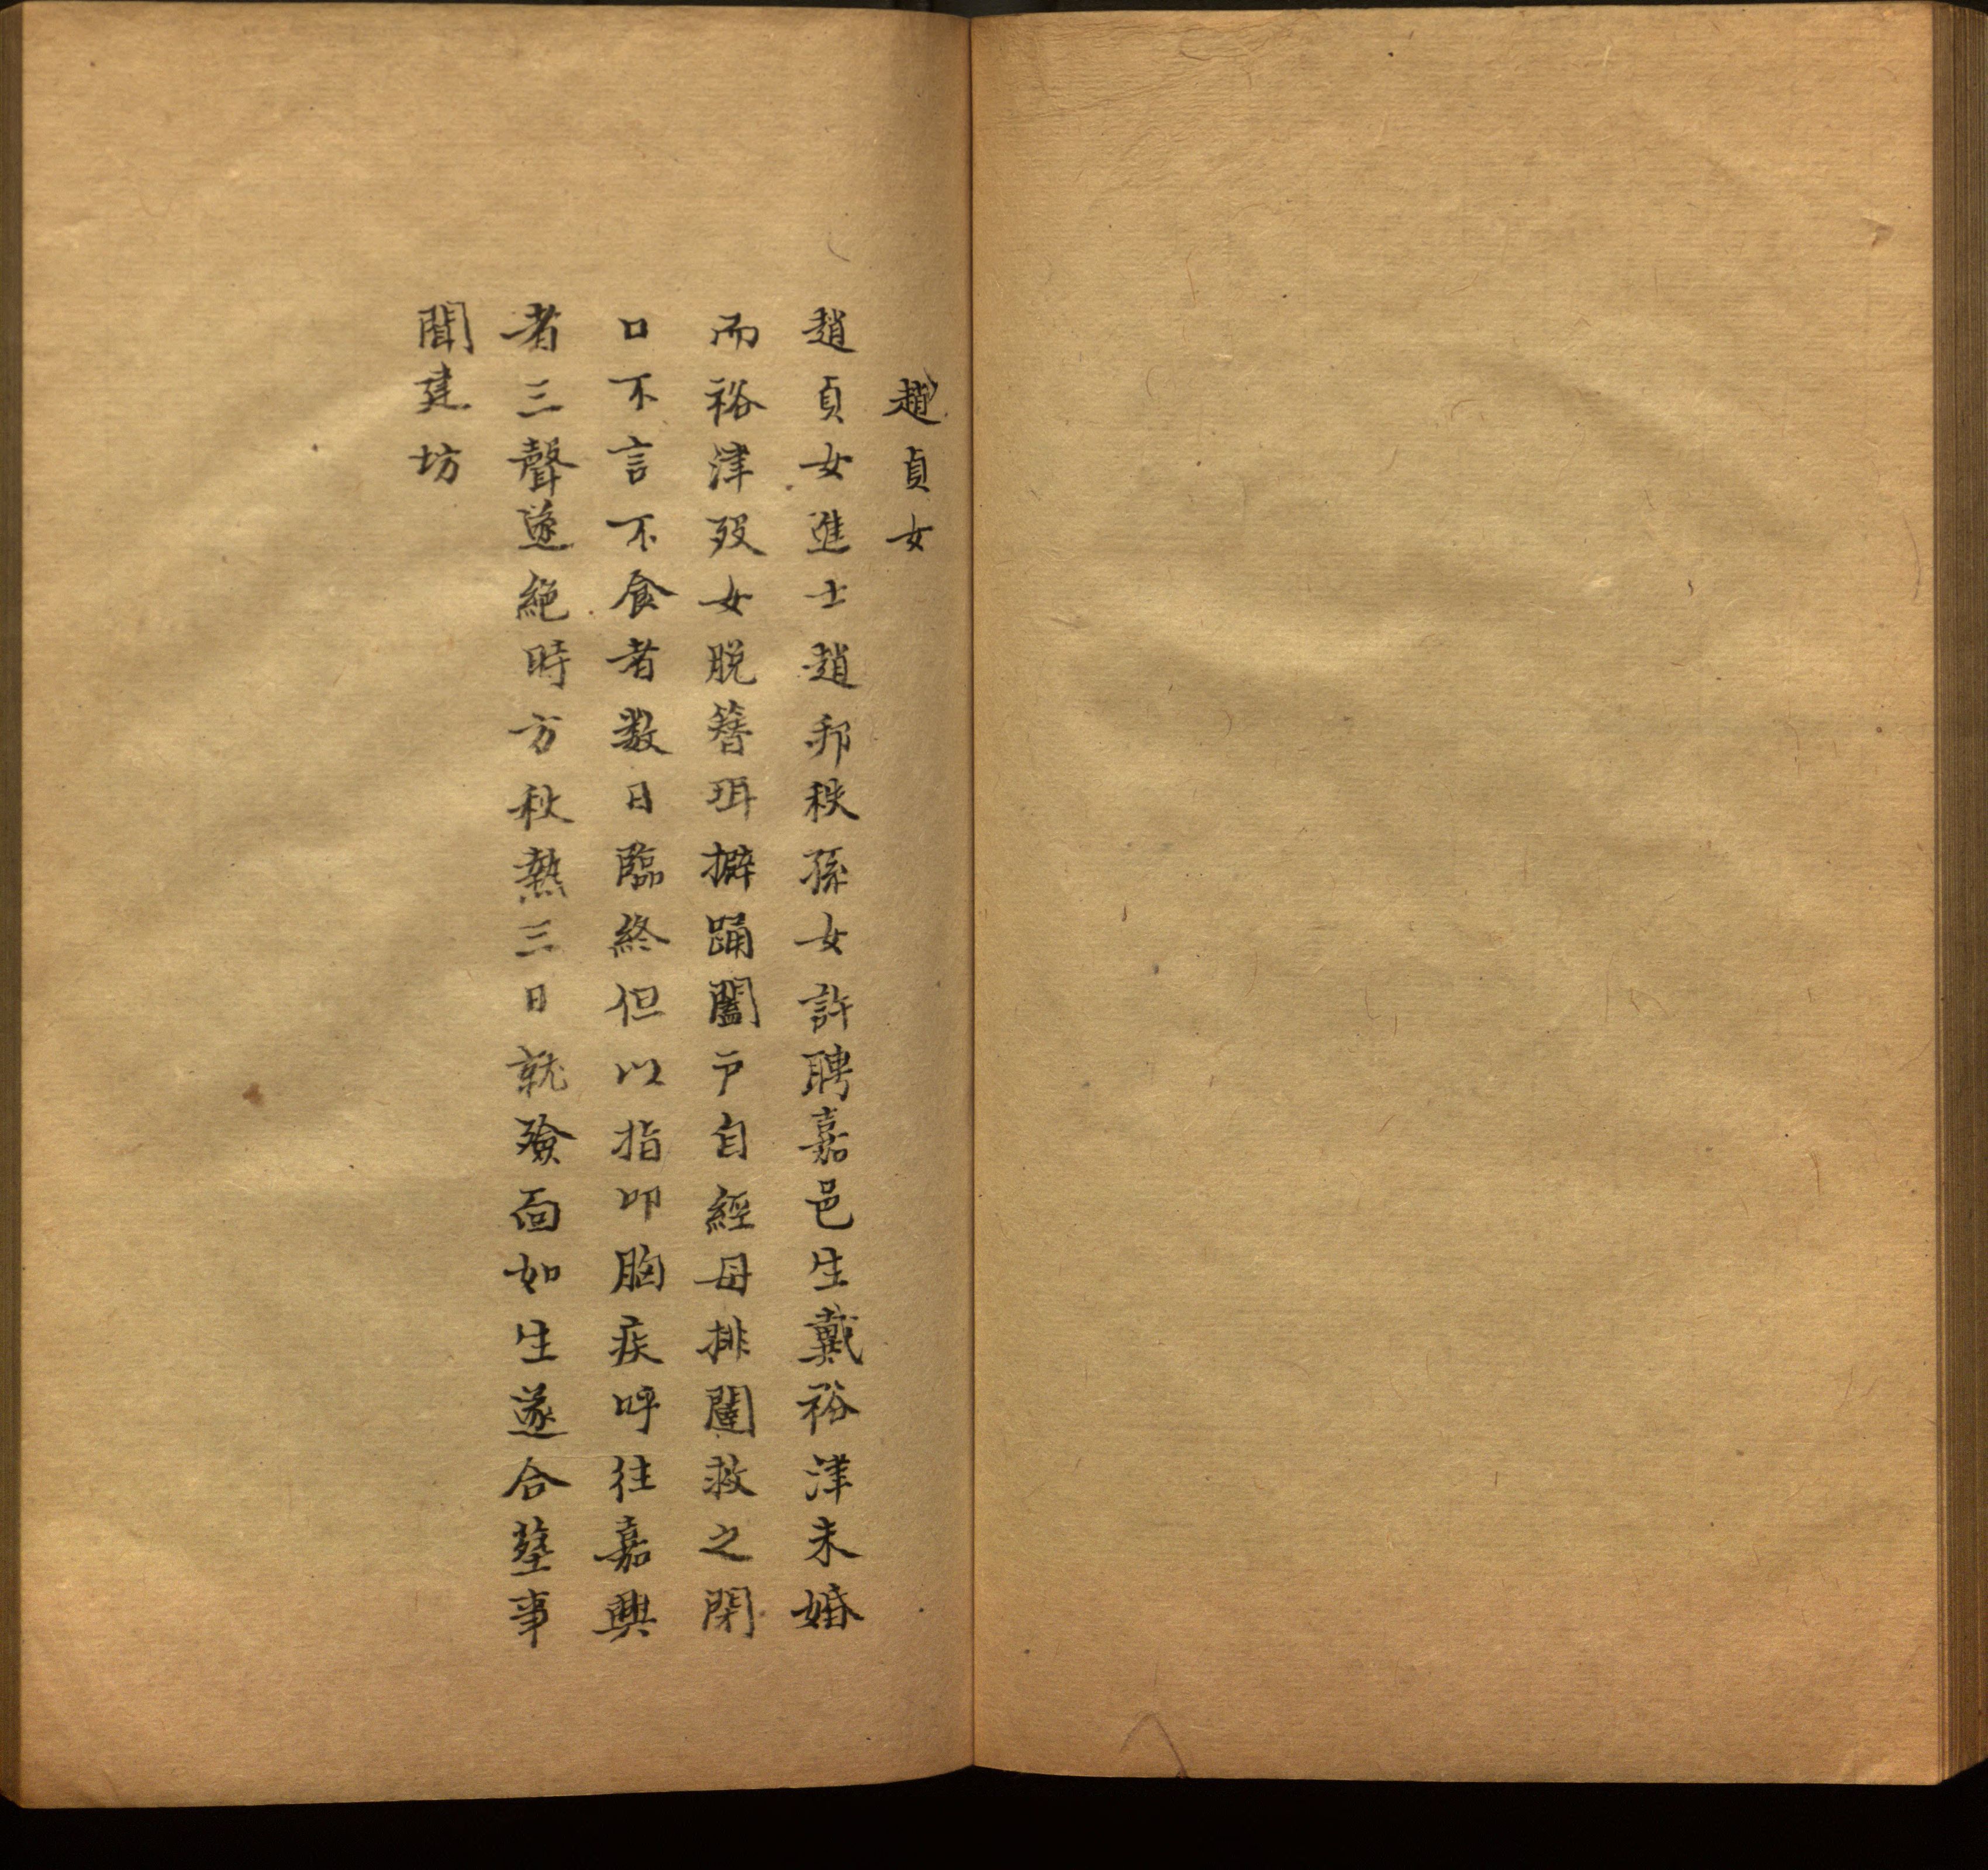 趙貞女
趙貞女進士趙邦秩孫女許聘嘉邑生戴裕津未婚
而裕津歿女脫簪珥擗踊闔戶自經母排闥救之閉
口不言不食者数日臨終但以指叩胸疾呼往嘉興
者三聲遂絕時方秋熱三日就殮面如生遂合塟事
聞建坊